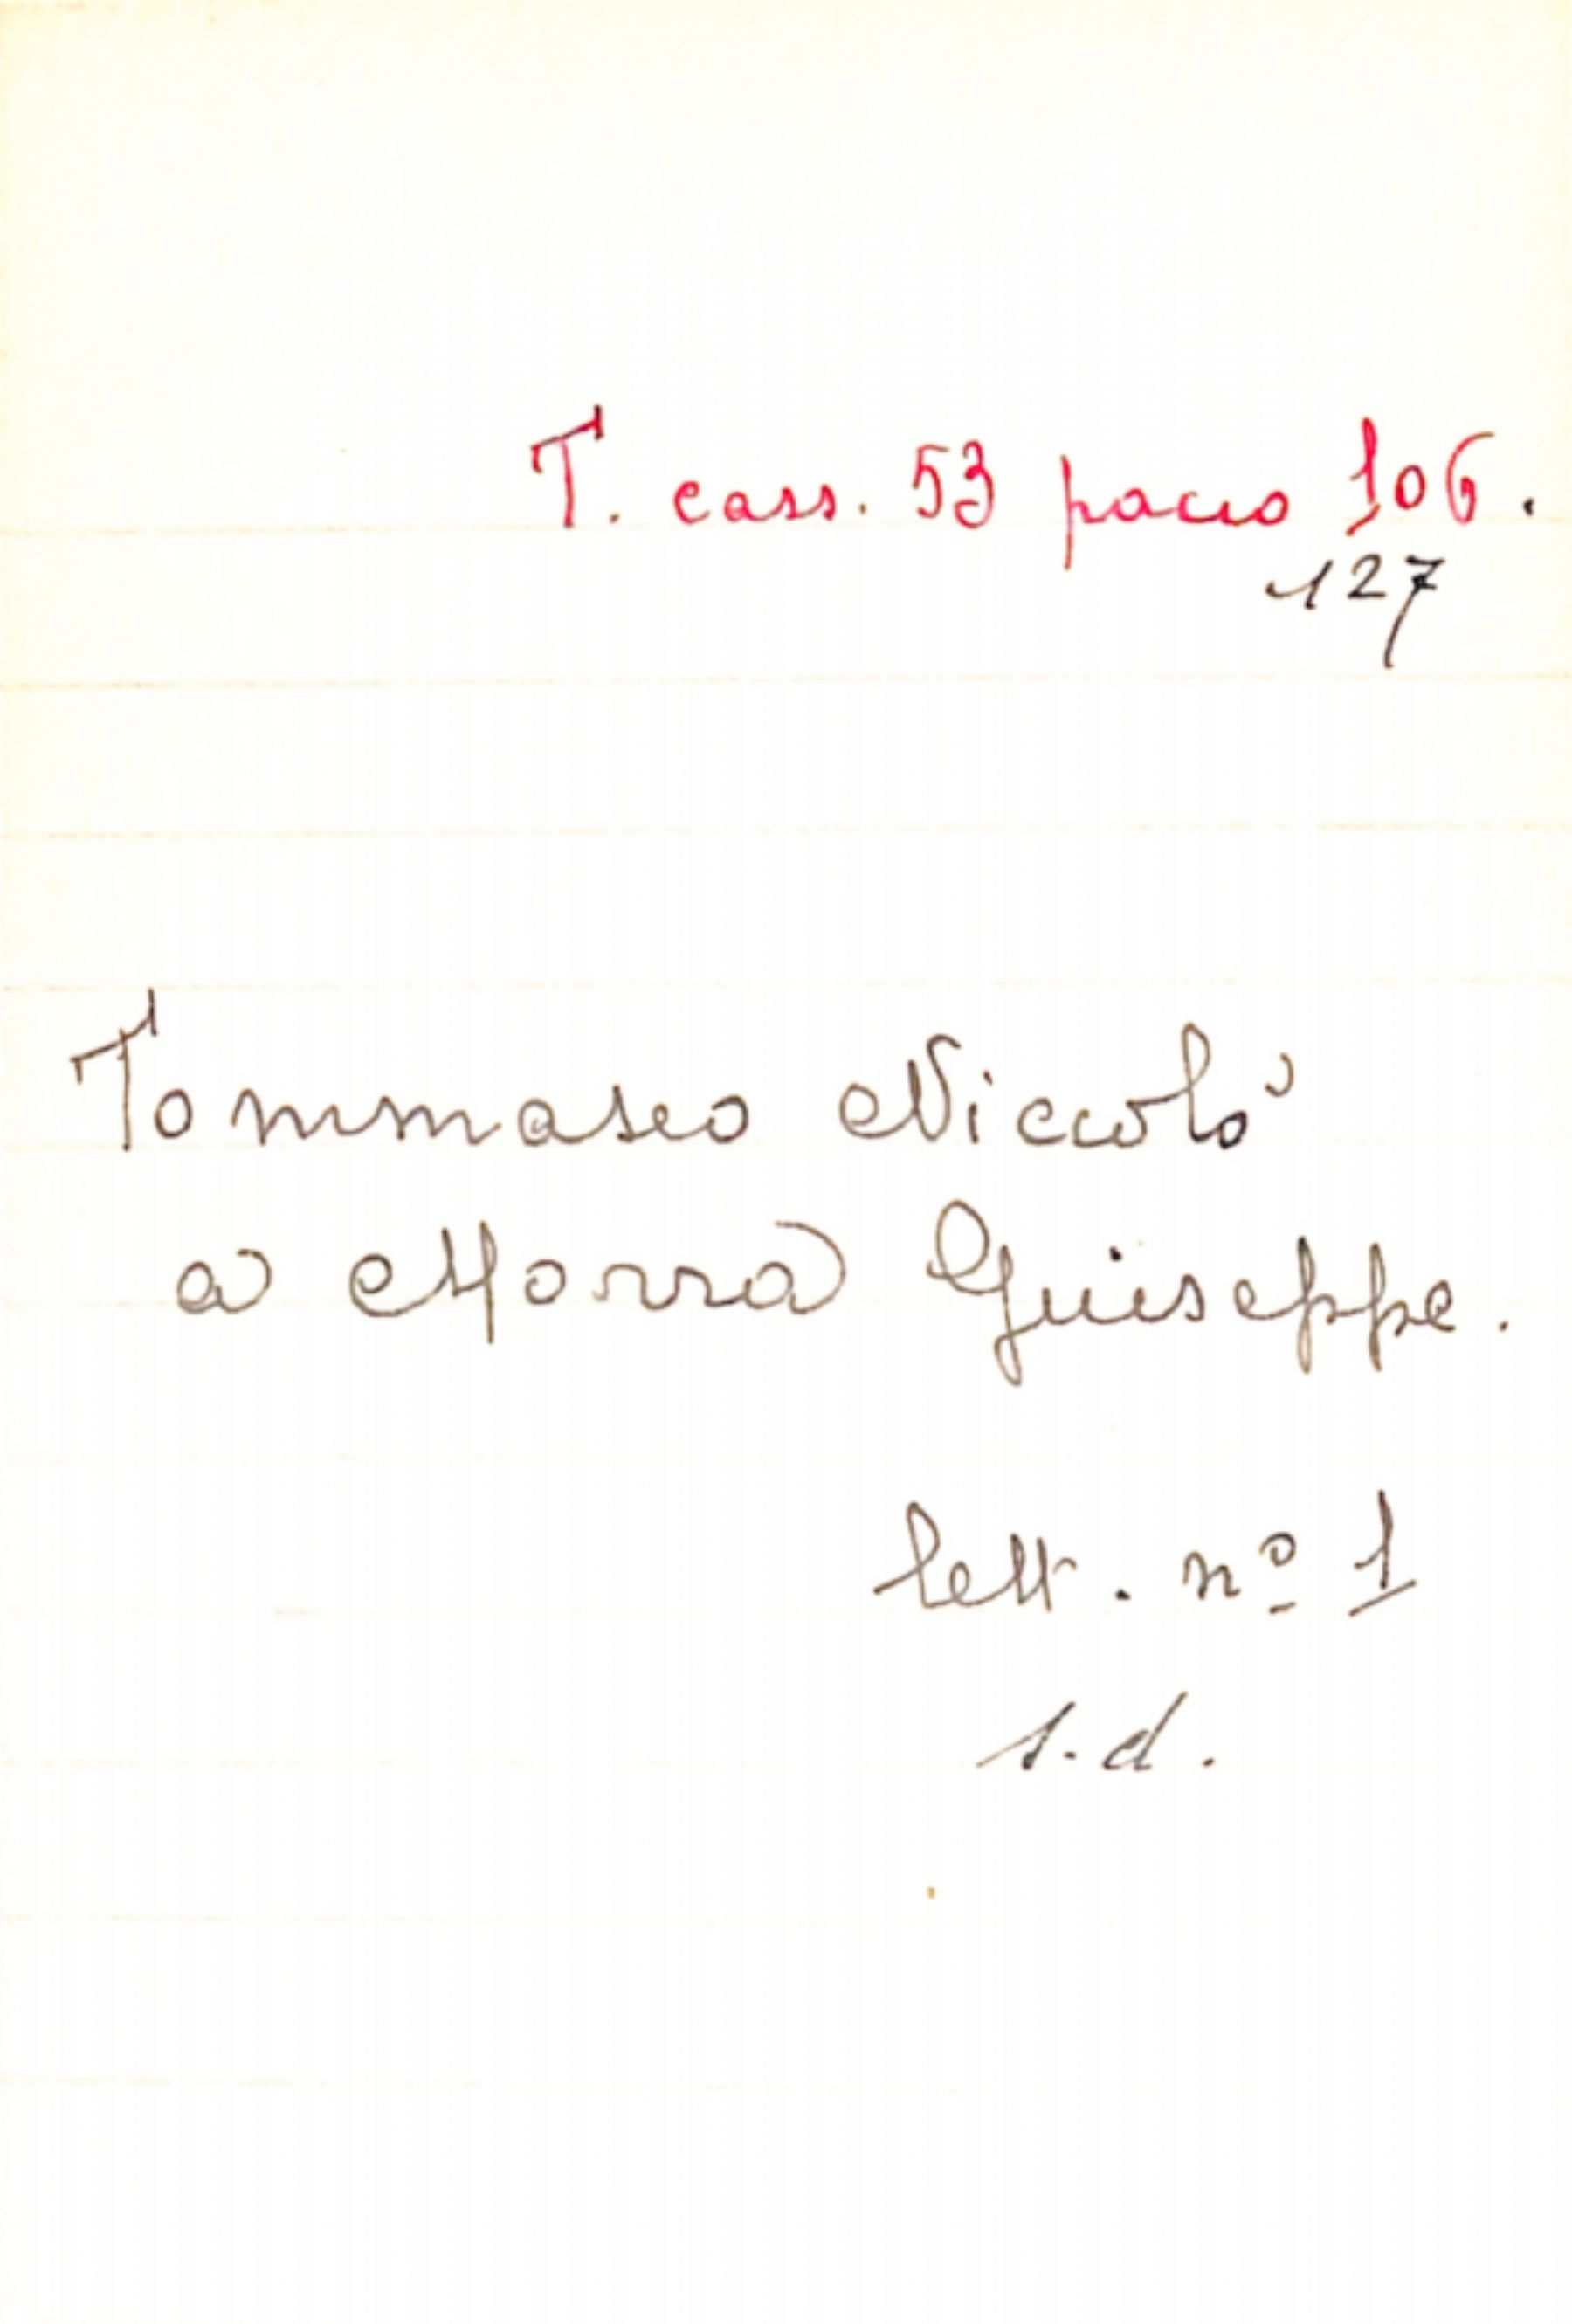 T. cass. 53 pacco 106.
127
Tommaseo Niccolò
a Morra Giuseppe.
lett. nº 1
s.d.